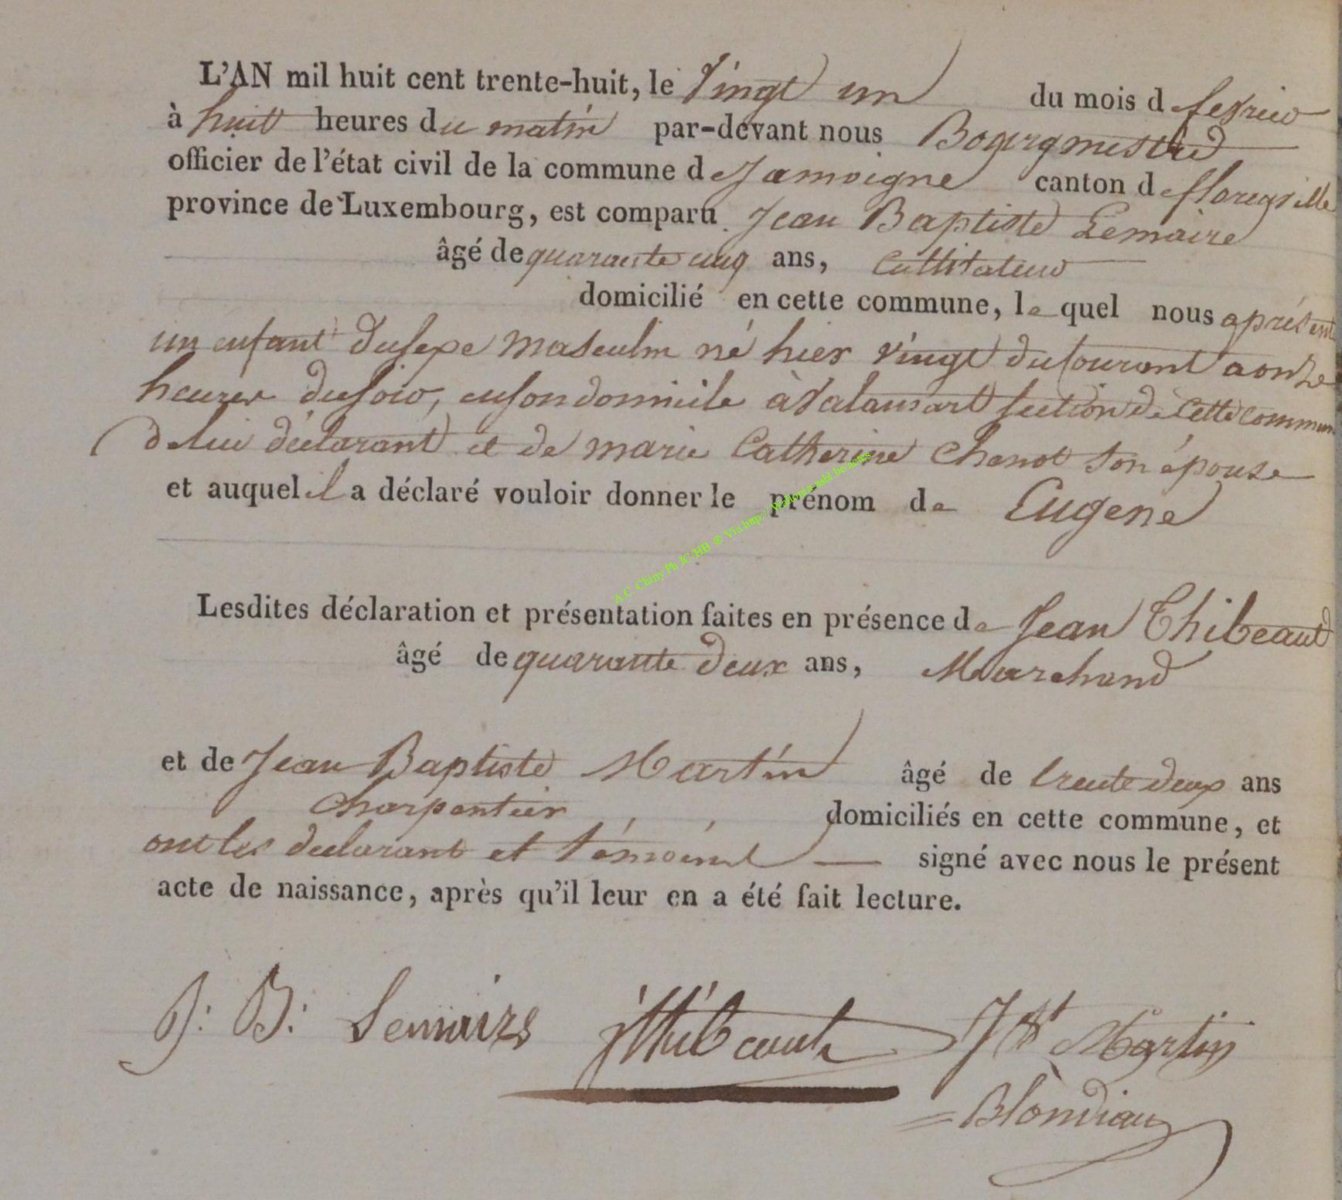 L'AN mil huit cent trente-huit, le vingt un du mois de fevrier
à huit heures du matin par-devant nous Bourgmestre
officier de l'état civil de la commune de Jamoigne canton de florenville
province de Luxembourg, est comparu Jean Baptiste Lemaire
âgé de quarante cinq ans, Cultivateur
domicilié en cette commune, lequel nous a présenté
un enfant du sexe masculin né hier vingt du courant a onze
heures du soir, en son domicile à Valansart section de cette commune
de lui déclarant et de marie Catherine Chenot son épouse
et auquel il a déclaré vouloir donner le prénom de Eugene
Lesdites déclaration et présentation faites en présence de Jean Thibeaut
âgé de quarante deux ans, Marchand
et de Jean Baptiste Martin âgé de trente deux ans
Charpentier domiciliés en cette commune, et
ont les declarant et témoins signé avec nous le présent
acte de naissance, après qu'il leur en a été fait lecture.
J: B: Lemaire jthibeaut J Bt Martin
Blondiau